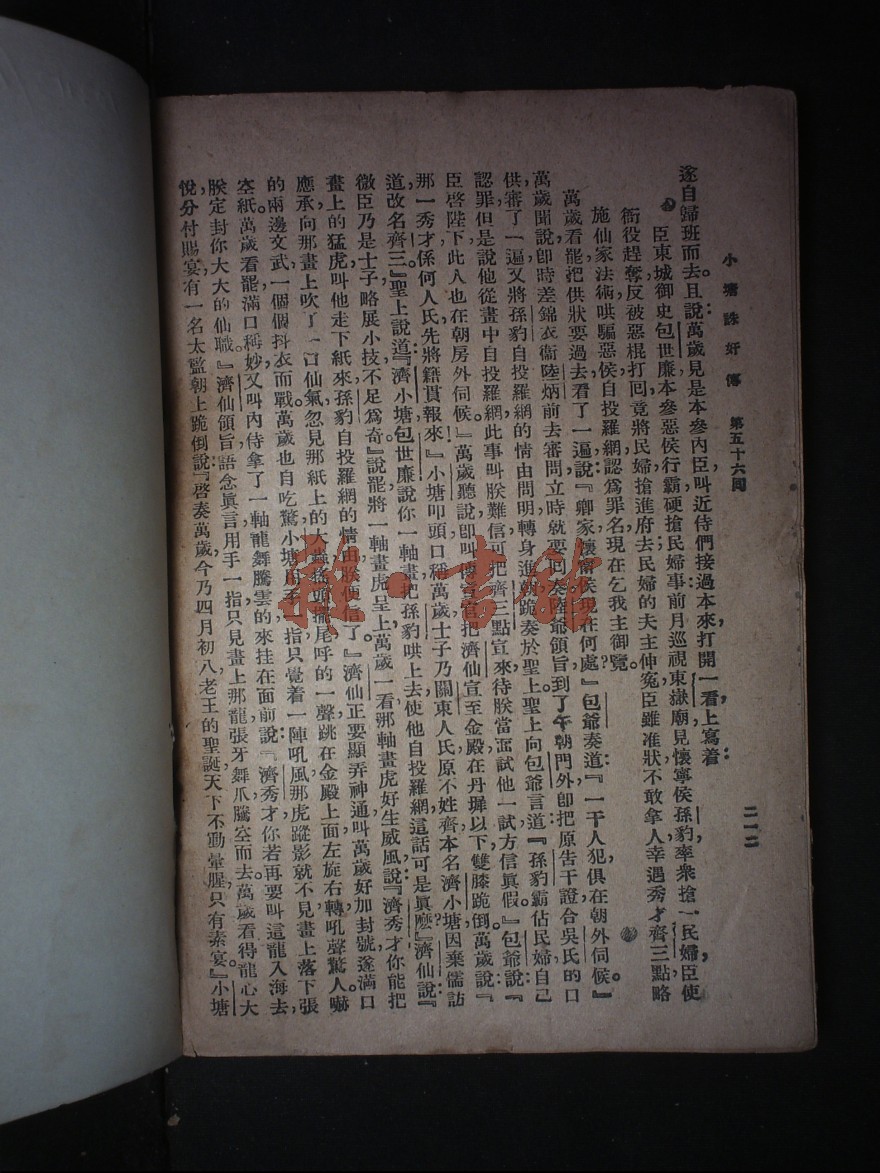 小塘誅奸傳 第五十六囘
二一二
遂自歸班而去。且說萬歲見是本參內臣，叫近侍們接過本來打開一看，上寫着：
臣東城御史包世廉本參惡侯行霸，硬搶民婦事：前月巡視東嶽廟，見懷寧侯孫豹率衆搶一民婦，臣使
衙役趕奪，反被惡棍打回，竟將民婦搶進府去。民婦的夫主伸寃，臣雖准狀，不敢拿人，幸遇秀才齊三點略
施仙家法術，哄騙惡侯自投羅網，認爲罪名，現在乞我主御覽。
萬歲看罷，把供狀要過去看了一遍，說：『卿家，懷甯侯現在何處？』包爺奏道：『一干人犯，俱在朝外伺候。』
萬歲聞說，卽時差錦衣衞陸炳前去審問，立時就要回奏。陸爺領旨，到了午朝門外，卽把原告干證合吳氏的口
供審了一遍，又將孫豹自投羅網的情由問明，轉身進朝，跪奏於聖上。聖上向包爺言道：『孫豹霸佔民婦，自己
認罪，但是說他從畫中自投羅網，此事叫朕難信，可把齊三點宣來，待朕當面試他一試，方信眞假。』包爺說：『
臣啓陛下，此人也在朝房外伺候！』萬歲聽說，卽叫傳宣官把濟仙宣至金殿，在丹墀以下雙膝跪倒。萬歲說：『
那一秀才係何人氏？先將籍貫報來。』小塘叩頭，口稱：『萬歲，士子乃關東人氏，原不姓齊，本名濟小塘，因棄儒訪
道，改名齊三。』聖上說道：『濟小塘，包世廉說你一軸畫把孫豹哄上去，使他自投羅網，這話可是眞麽？』濟仙說：『
微臣乃是士子，略展小技，不足爲奇。』說罷，將一軸畫虎呈上。萬歲一看那軸畫虎，好生威風，說：『濟秀才，你能把
畫上的猛虎叫他走下紙來，孫豹自投羅網的情由，朕便信了。』濟仙正要顯弄神通，叫萬歲好加封號，遂滿口
應承，向那畫上吹了一口仙氣，忽見那紙上的大蟲搖頭擺尾，呼的一聲跳在金殿上面，左旋右轉，吼聲驚人，嚇
的兩邊文武一個個抖衣而戰，萬歲也自吃驚。小塘用手一指，只覺着一陣吼風，那虎蹤影就不見，畫上落下張
空紙。萬歲看罷，滿口稱妙，又叫內侍拿了一軸龍舞騰雲的來，挂在面前，說：『濟秀才，你若再要叫這龍入海去，
朕定封你大大的仙職。』濟仙領旨，語念眞言，用手一指，只見畫上那龍張牙舞爪，騰空而去。萬歲看得龍心大
悅，分付賜宴。有一名太監朝上跪倒，說：『啓奏萬歲，今乃四月初八，老王的聖誕，天下不動暈腥，只有素宴。』小塘